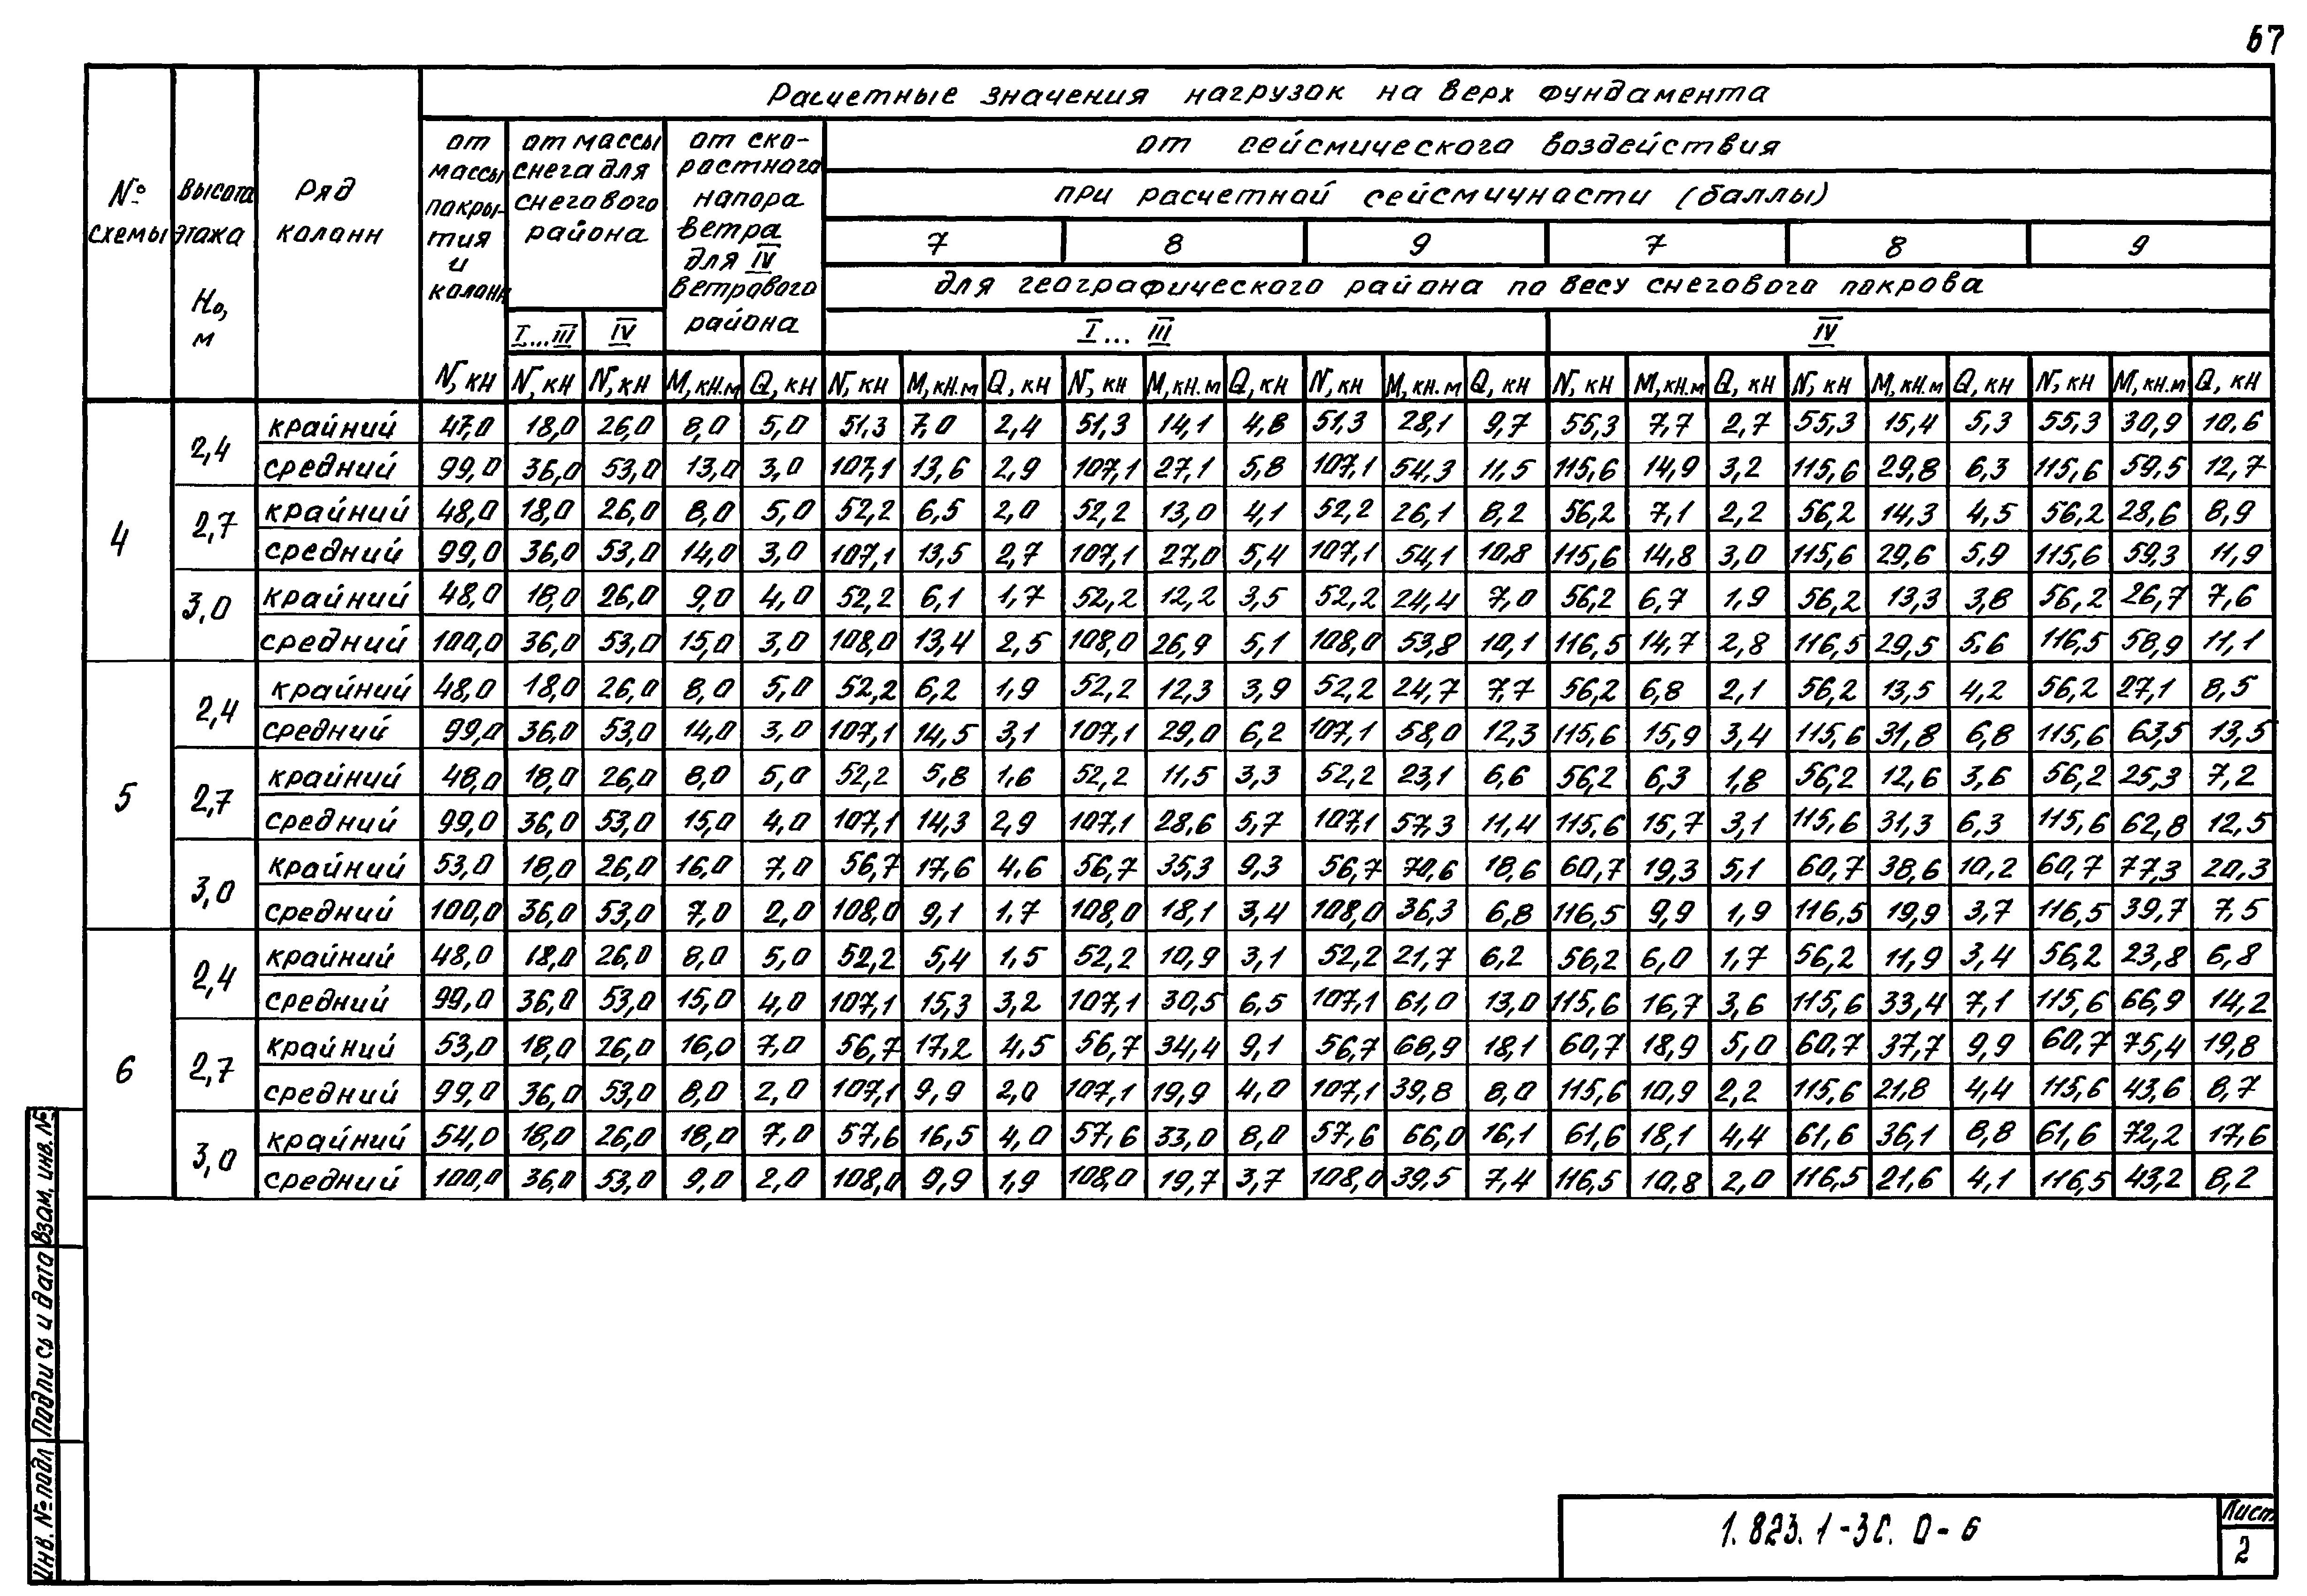 67
Расчетные значения нагрузок на верх фундамента
№ схемы
Высота этажа Но, м
Ряд колонн
от массы покрытия и колонн
от массы снега для снегового района
от скоростного напора ветра для IV ветрового района
от сейсмического воздействия
при расчетной сейсмичности (баллы)
7 8 9 7 8 9
для географического района по весу снегового покрова
I...III IV I...III IV
N, кН N, кН N, кН M, кН.м Q, кН N, кН M, кН.м Q, кН N, кН M, кН.м Q, кН N, кН M, кН.м Q, кН N, кН M, кН.м Q, кН N, кН M, кН.м Q, кН N, кН M, кН.м Q, кН
4
2,4 крайний 47,0 18,0 26,0 8,0 5,0 51,3 7,0 2,4 51,3 14,1 4,8 51,3 28,1 9,7 55,3 7,7 2,7 55,3 15,4 5,3 55,3 30,9 10,6
средний 99,0 36,0 53,0 13,0 3,0 107,1 13,6 2,9 107,1 27,1 5,8 107,1 54,3 11,5 115,6 14,9 3,2 115,6 29,8 6,3 115,6 59,5 12,7
2,7 крайний 48,0 18,0 26,0 8,0 5,0 52,2 6,5 2,0 52,2 13,0 4,1 52,2 26,1 8,2 56,2 7,1 2,2 56,2 14,3 4,5 56,2 28,6 8,9
средний 99,0 36,0 53,0 14,0 3,0 107,1 13,5 2,7 107,1 27,0 5,4 107,1 54,1 10,8 115,6 14,8 3,0 115,6 29,6 5,9 115,6 59,3 11,9
3,0 крайний 48,0 18,0 26,0 9,0 4,0 52,2 6,1 1,7 52,2 12,2 3,5 52,2 24,4 7,0 56,2 6,7 1,9 56,2 13,3 3,8 56,2 26,7 7,6
средний 100,0 36,0 53,0 15,0 3,0 108,0 13,4 2,5 108,0 26,9 5,1 108,0 53,8 10,1 116,5 14,7 2,8 116,5 29,5 5,6 116,5 58,9 11,1
5
2,4 крайний 48,0 18,0 26,0 8,0 5,0 52,2 6,2 1,9 52,2 12,3 3,9 52,2 24,7 7,7 56,2 6,8 2,1 56,2 13,5 4,2 56,2 27,1 8,5
средний 99,0 36,0 53,0 14,0 3,0 107,1 14,5 3,1 107,1 29,0 6,2 107,1 58,0 12,3 115,6 15,9 3,4 115,6 31,8 6,8 115,6 63,5 13,5
2,7 крайний 48,0 18,0 26,0 8,0 5,0 52,2 5,8 1,6 52,2 11,5 3,3 52,2 23,1 6,6 56,2 6,3 1,8 56,2 12,6 3,6 56,2 25,3 7,2
средний 99,0 36,0 53,0 15,0 4,0 107,1 14,3 2,9 107,1 28,6 5,7 107,1 57,3 11,4 115,6 15,7 3,1 115,6 31,3 6,3 115,6 62,8 12,5
3,0 крайний 53,0 18,0 26,0 16,0 7,0 56,7 17,6 4,6 56,7 35,3 9,3 56,7 70,6 18,6 60,7 19,3 5,1 60,7 38,6 10,2 60,7 77,3 20,3
средний 100,0 36,0 53,0 7,0 2,0 108,0 9,1 1,7 108,0 18,1 3,4 108,0 36,3 6,8 116,5 9,9 1,9 116,5 19,9 3,7 116,5 39,7 7,5
6
2,4 крайний 48,0 18,0 26,0 8,0 5,0 52,2 5,4 1,5 52,2 10,9 3,1 52,2 21,7 6,2 56,2 6,0 1,7 56,2 11,9 3,4 56,2 23,8 6,8
средний 99,0 36,0 53,0 15,0 4,0 107,1 15,3 3,2 107,1 30,5 6,5 107,1 61,0 13,0 115,6 16,7 3,6 115,6 33,4 7,1 115,6 66,9 14,2
2,7 крайний 53,0 18,0 26,0 16,0 7,0 56,7 17,2 4,5 56,7 34,4 9,1 56,7 68,9 18,1 60,7 18,9 5,0 60,7 37,7 9,9 60,7 75,4 19,8
средний 99,0 36,0 53,0 8,0 2,0 107,1 9,9 2,0 107,1 19,9 4,0 107,1 39,8 8,0 115,6 10,9 2,2 115,6 21,8 4,4 115,6 43,6 8,7
3,0 крайний 54,0 18,0 26,0 18,0 7,0 57,6 16,5 4,0 57,6 33,0 8,0 57,6 66,0 16,1 61,6 18,1 4,4 61,6 36,1 8,8 61,6 72,2 17,6
средний 100,0 36,0 53,0 9,0 2,0 108,0 9,9 1,9 108,0 19,7 3,7 108,0 39,5 7,4 116,5 10,8 2,0 116,5 21,6 4,1 116,5 43,2 8,2
Инв. № подл Подпись и дата Взам. инв. №
1.823.1-3С. 0-6
Лист
2